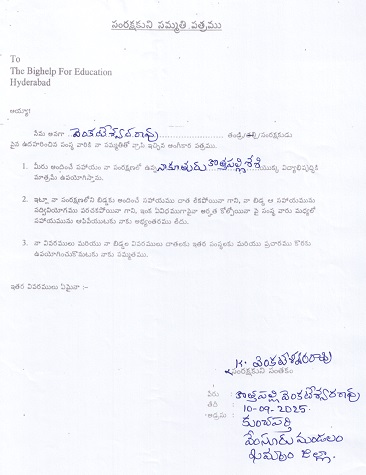 సంరక్షకుని సమ్మతి పత్రము
To
The Bighelp For Education
Hyderabad
అయ్యా!
నేను అనగా వెంకటేశ్వరరావు తండ్రి/తల్లి/సంరక్షకుడు
పైన ఉదహరించిన సంస్థ వారికి నా సమ్మతితో వ్రాసి ఇచ్చిన అంగీకార పత్రము.
1. మీరు అందించే సహాయం నా సంరక్షణలో ఉన్న నా కూతురు కొత్తపల్లి శశి యొక్క విద్యాభివృద్ధికి
మాత్రమే ఉపయోగిస్తాను.
2. ఇట్లా నా సంరక్షణలోని బిడ్డకు అందించే సహాయము చాత లేకపోయినా గాని, నా బిడ్డ ఆ సహాయమును
సద్వినియోగము పరచకపోయినా గాని, ఇంక ఏవిధముగానైనా అర్హత కోల్పోయినా పై సంస్థ వారు మధ్యలో
సహాయమును ఆపివేయుటకు నాకు అభ్యంతరము లేదు.
3. నా వివరములు మరియు నా బిడ్డల వివరములు దాతలకు ఇతర సంస్థలకు మరియు ప్రచారము కొరకు
ఉపయోగించుకొనుటకు నాకు సమ్మతము.
ఇతర వివరములు ఏమైనా :-
K. వెంకటేశ్వరరావు
సంరక్షకుని సంతకం
పేరు : కొత్తపల్లి వెంకటేశ్వరరావు
తేదీ : 10-09-2025.
అడ్రసు : కుంచపర్తి
వేంసూరు మండలం
ఖమ్మం జిల్లా.